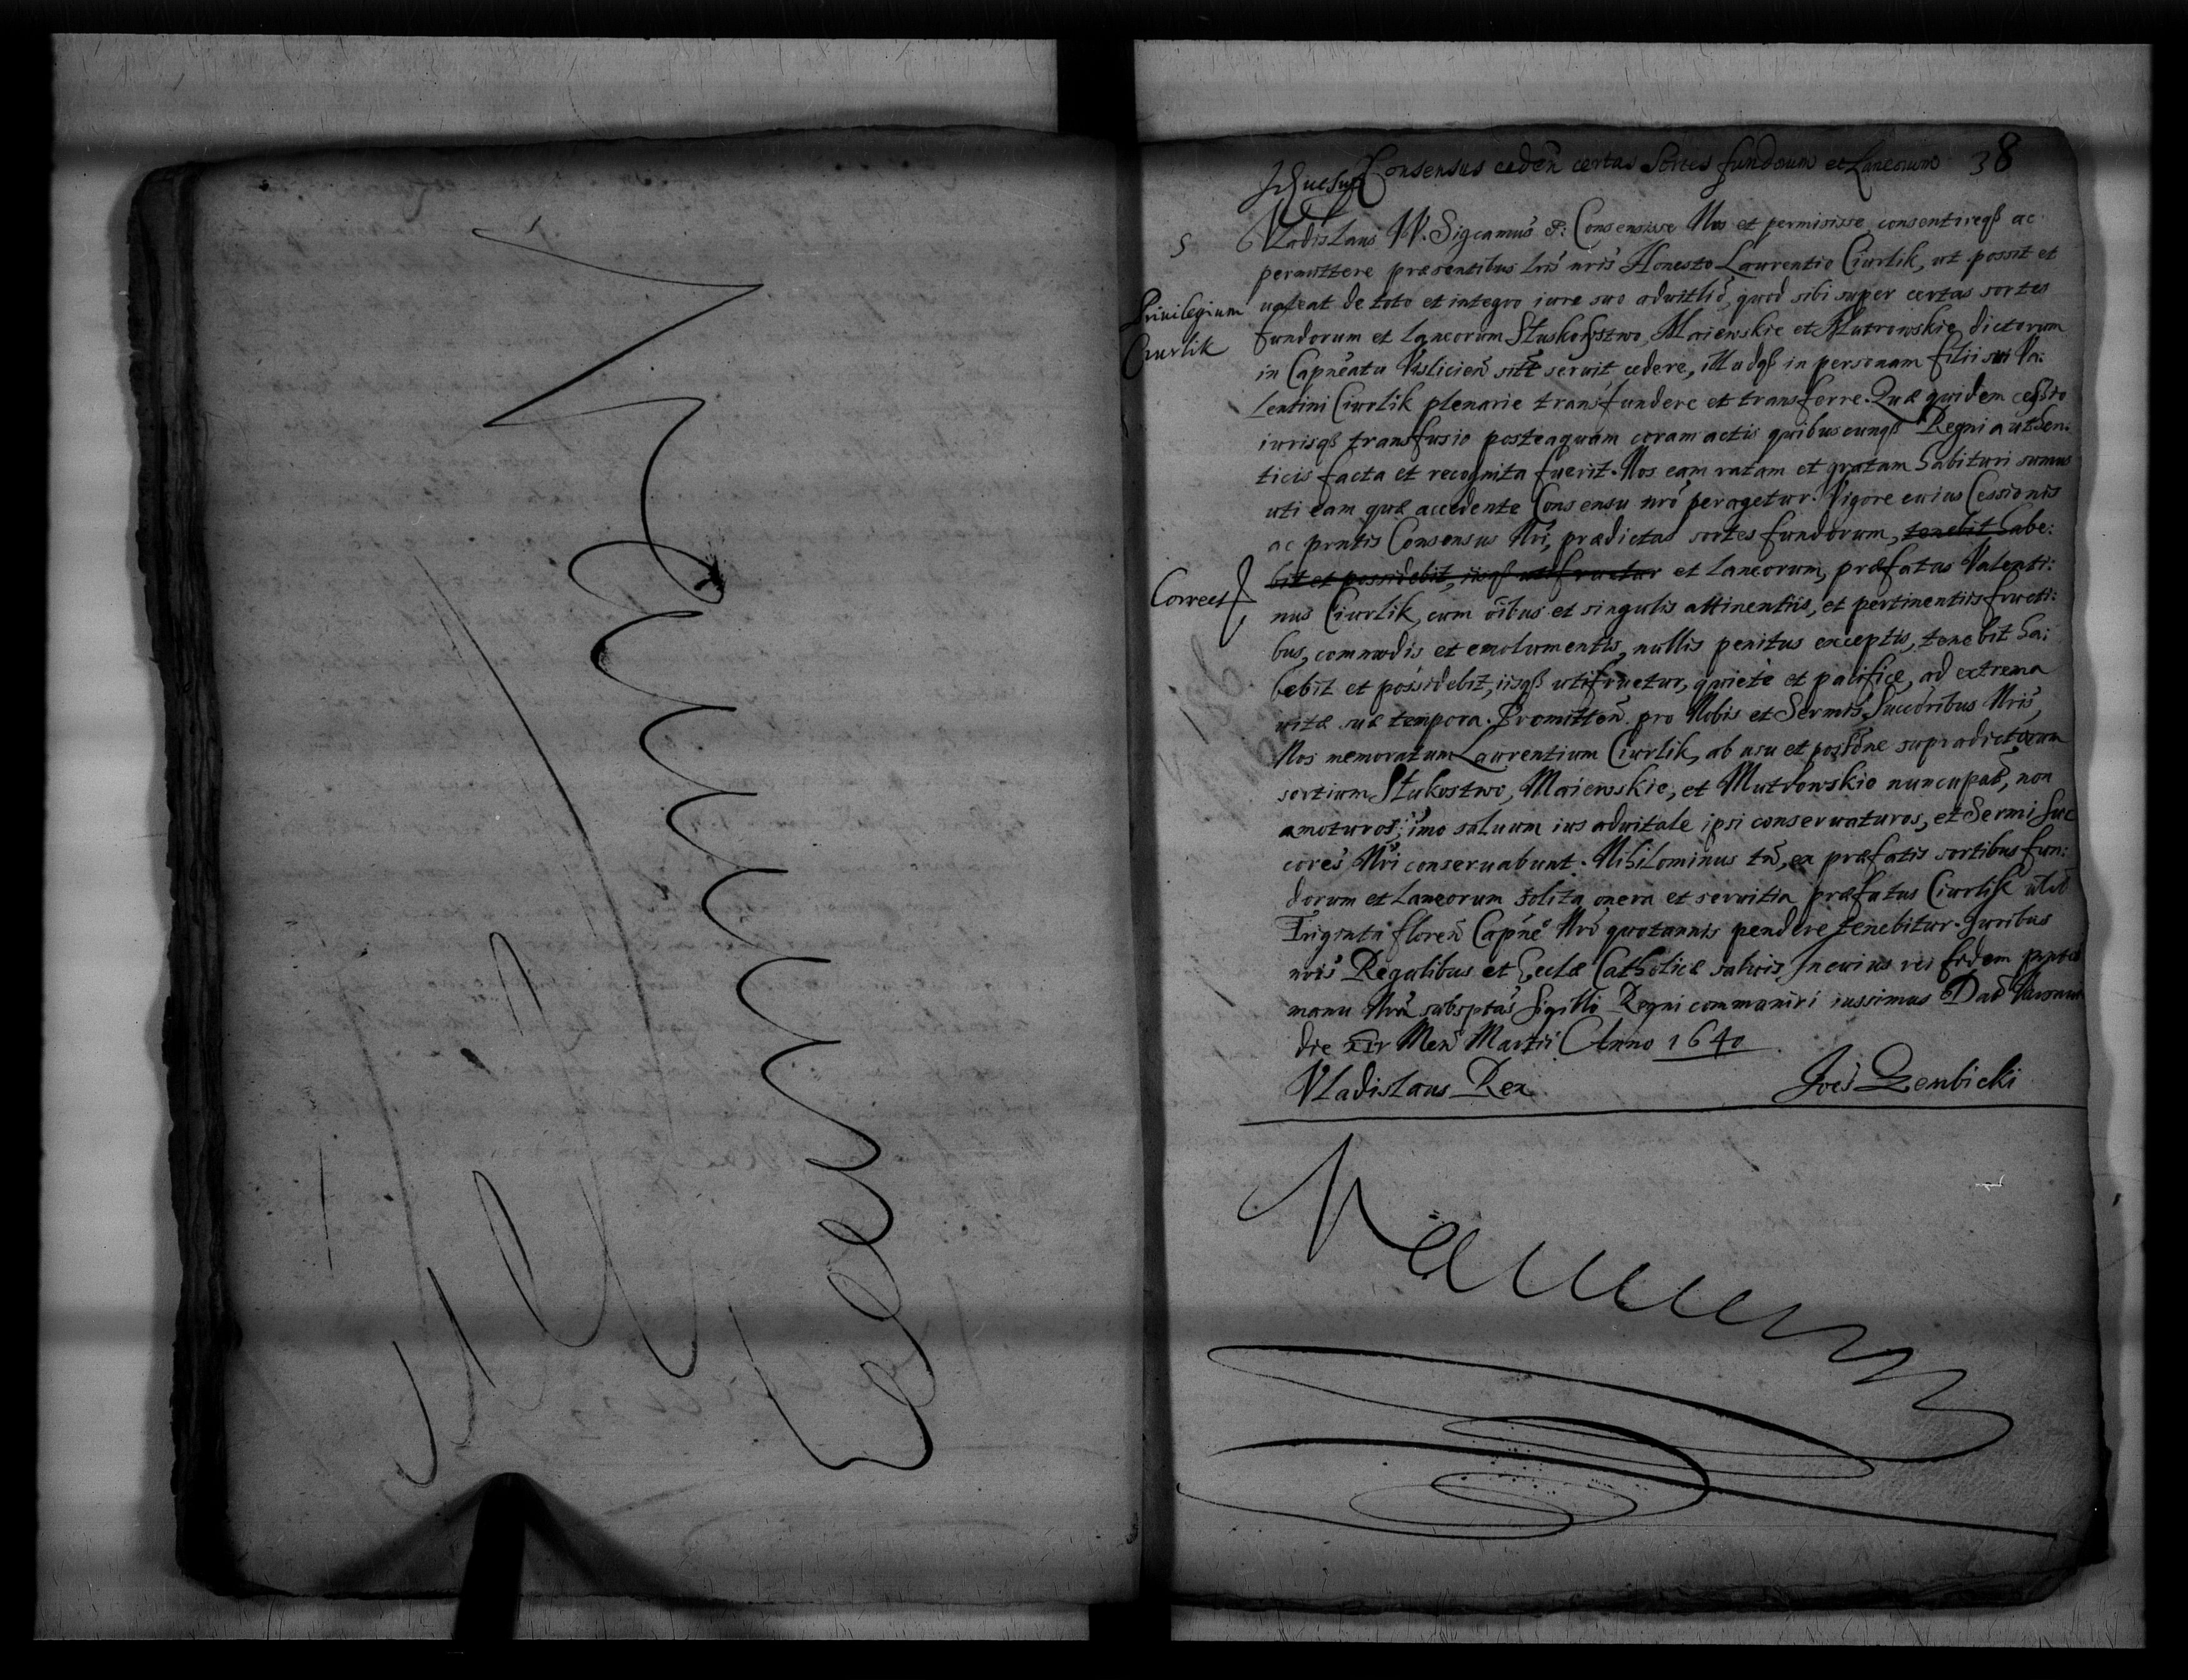 Vacuum
Consensus ceden̄ certas Sortes fundorum et Laneorum 38
5
Vladislaus IV. Sigcamus &: Consensisse Nos et permisisse, consentireqß ac
permittere præsentibus lris nris Honesto Laurentio Ciurlik, ut possit et
Privilegium
Ciurlik
ualeat de toto et integro iure suo aduitlio, quod sibi super certas sortes
fundorum et laneorum Słuskowstwo, Maiewskie et Mutrowskie dictorum
in Capneatu Vislicien̄ sitt seruit cedere, illudqß in personam filii sui Va:
lentini Ciurlik plenarie transfundere et transferre. Quæ quidem cessio
iurisqß transfusio posteaquam coram actis quibuscunqß Regni authen:
ticis facta et recognita fuerit. Nos eam ratam et gratam habituri sumus
uti eam quæ accedente Consensu nrō peragetur. Vigore cuius Cessionis
ac pntis Consensus Nri, prædictas sortes fundorum, tenebit habe:
Correct
bit et possidebit, iisqß utifruetur et laneorum, præfatus Valenti:
nus Ciurlik, cum oībus et singulis attinentiis, et pertinentiis fructi:
bus, commodis et emolumentis, nullis penitus exceptis, tenebit ha:
bebit et possidebit, iisqß utifruetur, quiete et pacifice, ad extrema
uitæ suæ tempora. Promitten̄ pro Nobis et Sermis Succoribus Nris,
Nos memoratum Laurentium Ciurlik, ab usu et possōne supradictarum
sortium Słukostwo, Maiewskie, et Mutrowskie nuncupat, non
amoturos; imo saluum ius aduitale ipsi conseruaturos, et Sermi Suc
cores Nri conseruabunt. Nihilominus tn̄, ex præfatis sortibus fun:
dorum et Laneorum solita onera et seruitia præfatus Ciurlik
Triginta floren̄ Capne Nrō quotannis pendere tenebitur. Juribus
nris Regalibus et Eccłæ Catholicæ saluis, In cuius rei fidem pntes
manu Nra subsptas Sigillō Regni communiri iussimus Dat Varsauiæ
die Men̄ Martii Anno 1640
Vladislaus Rex Joēs Gembicki
Vacuum